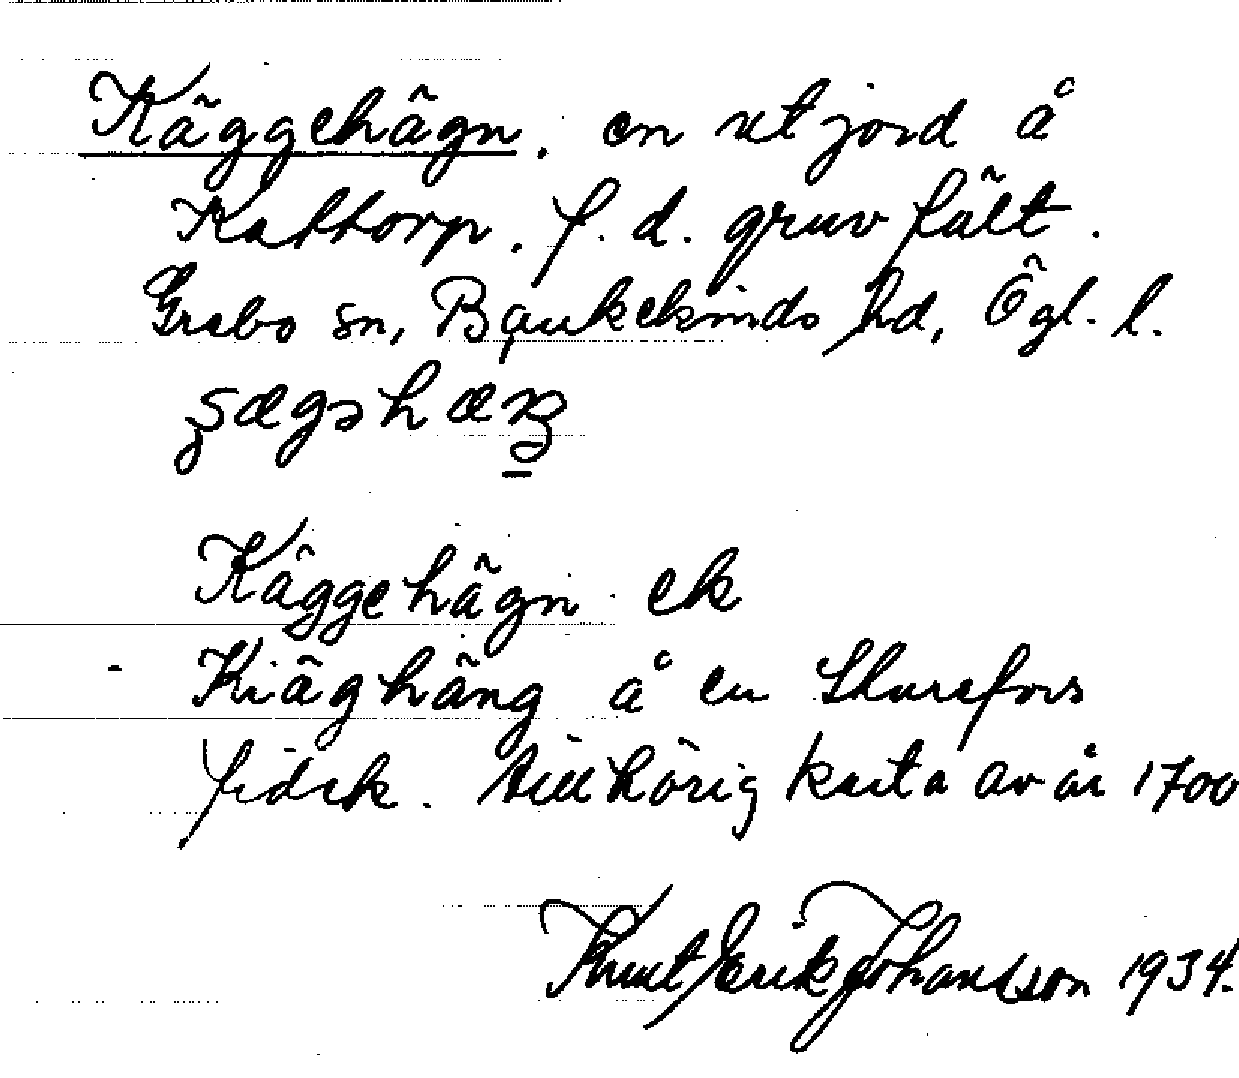 Käggehägn. en utjord å
Kattorp. f. d. gruvfält.
Grebo sn, Bankekinds hd, Ögl. l.
Käggehägn ek
Kiäghäng å en Sturefors
fidek. tillhörig karta av år 1700
Knut Erik Johansson 1934.